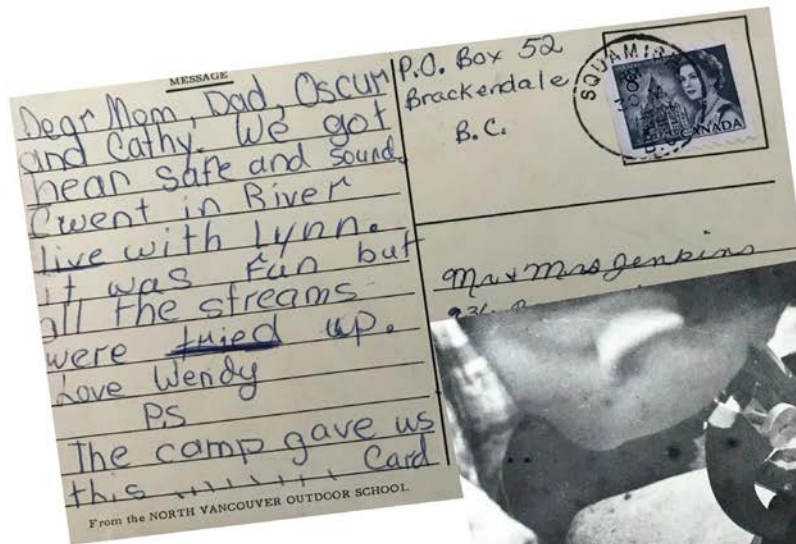 MESSAGE
Dear Mom, Dad, Oscur
and Cathy. We got
hear safe and sound.
I went in River
live with Lynn.
it was fun but
all the streams
were up.
Love Wendy
P.S
The camp gave us
this Card
From the NORTH VANCOUVER OUTDOOR SCHOOL
P.O. Box 52
Brackendale
B.C.
SQUAMISH
CANADA
Mr & Mrs Jenkins